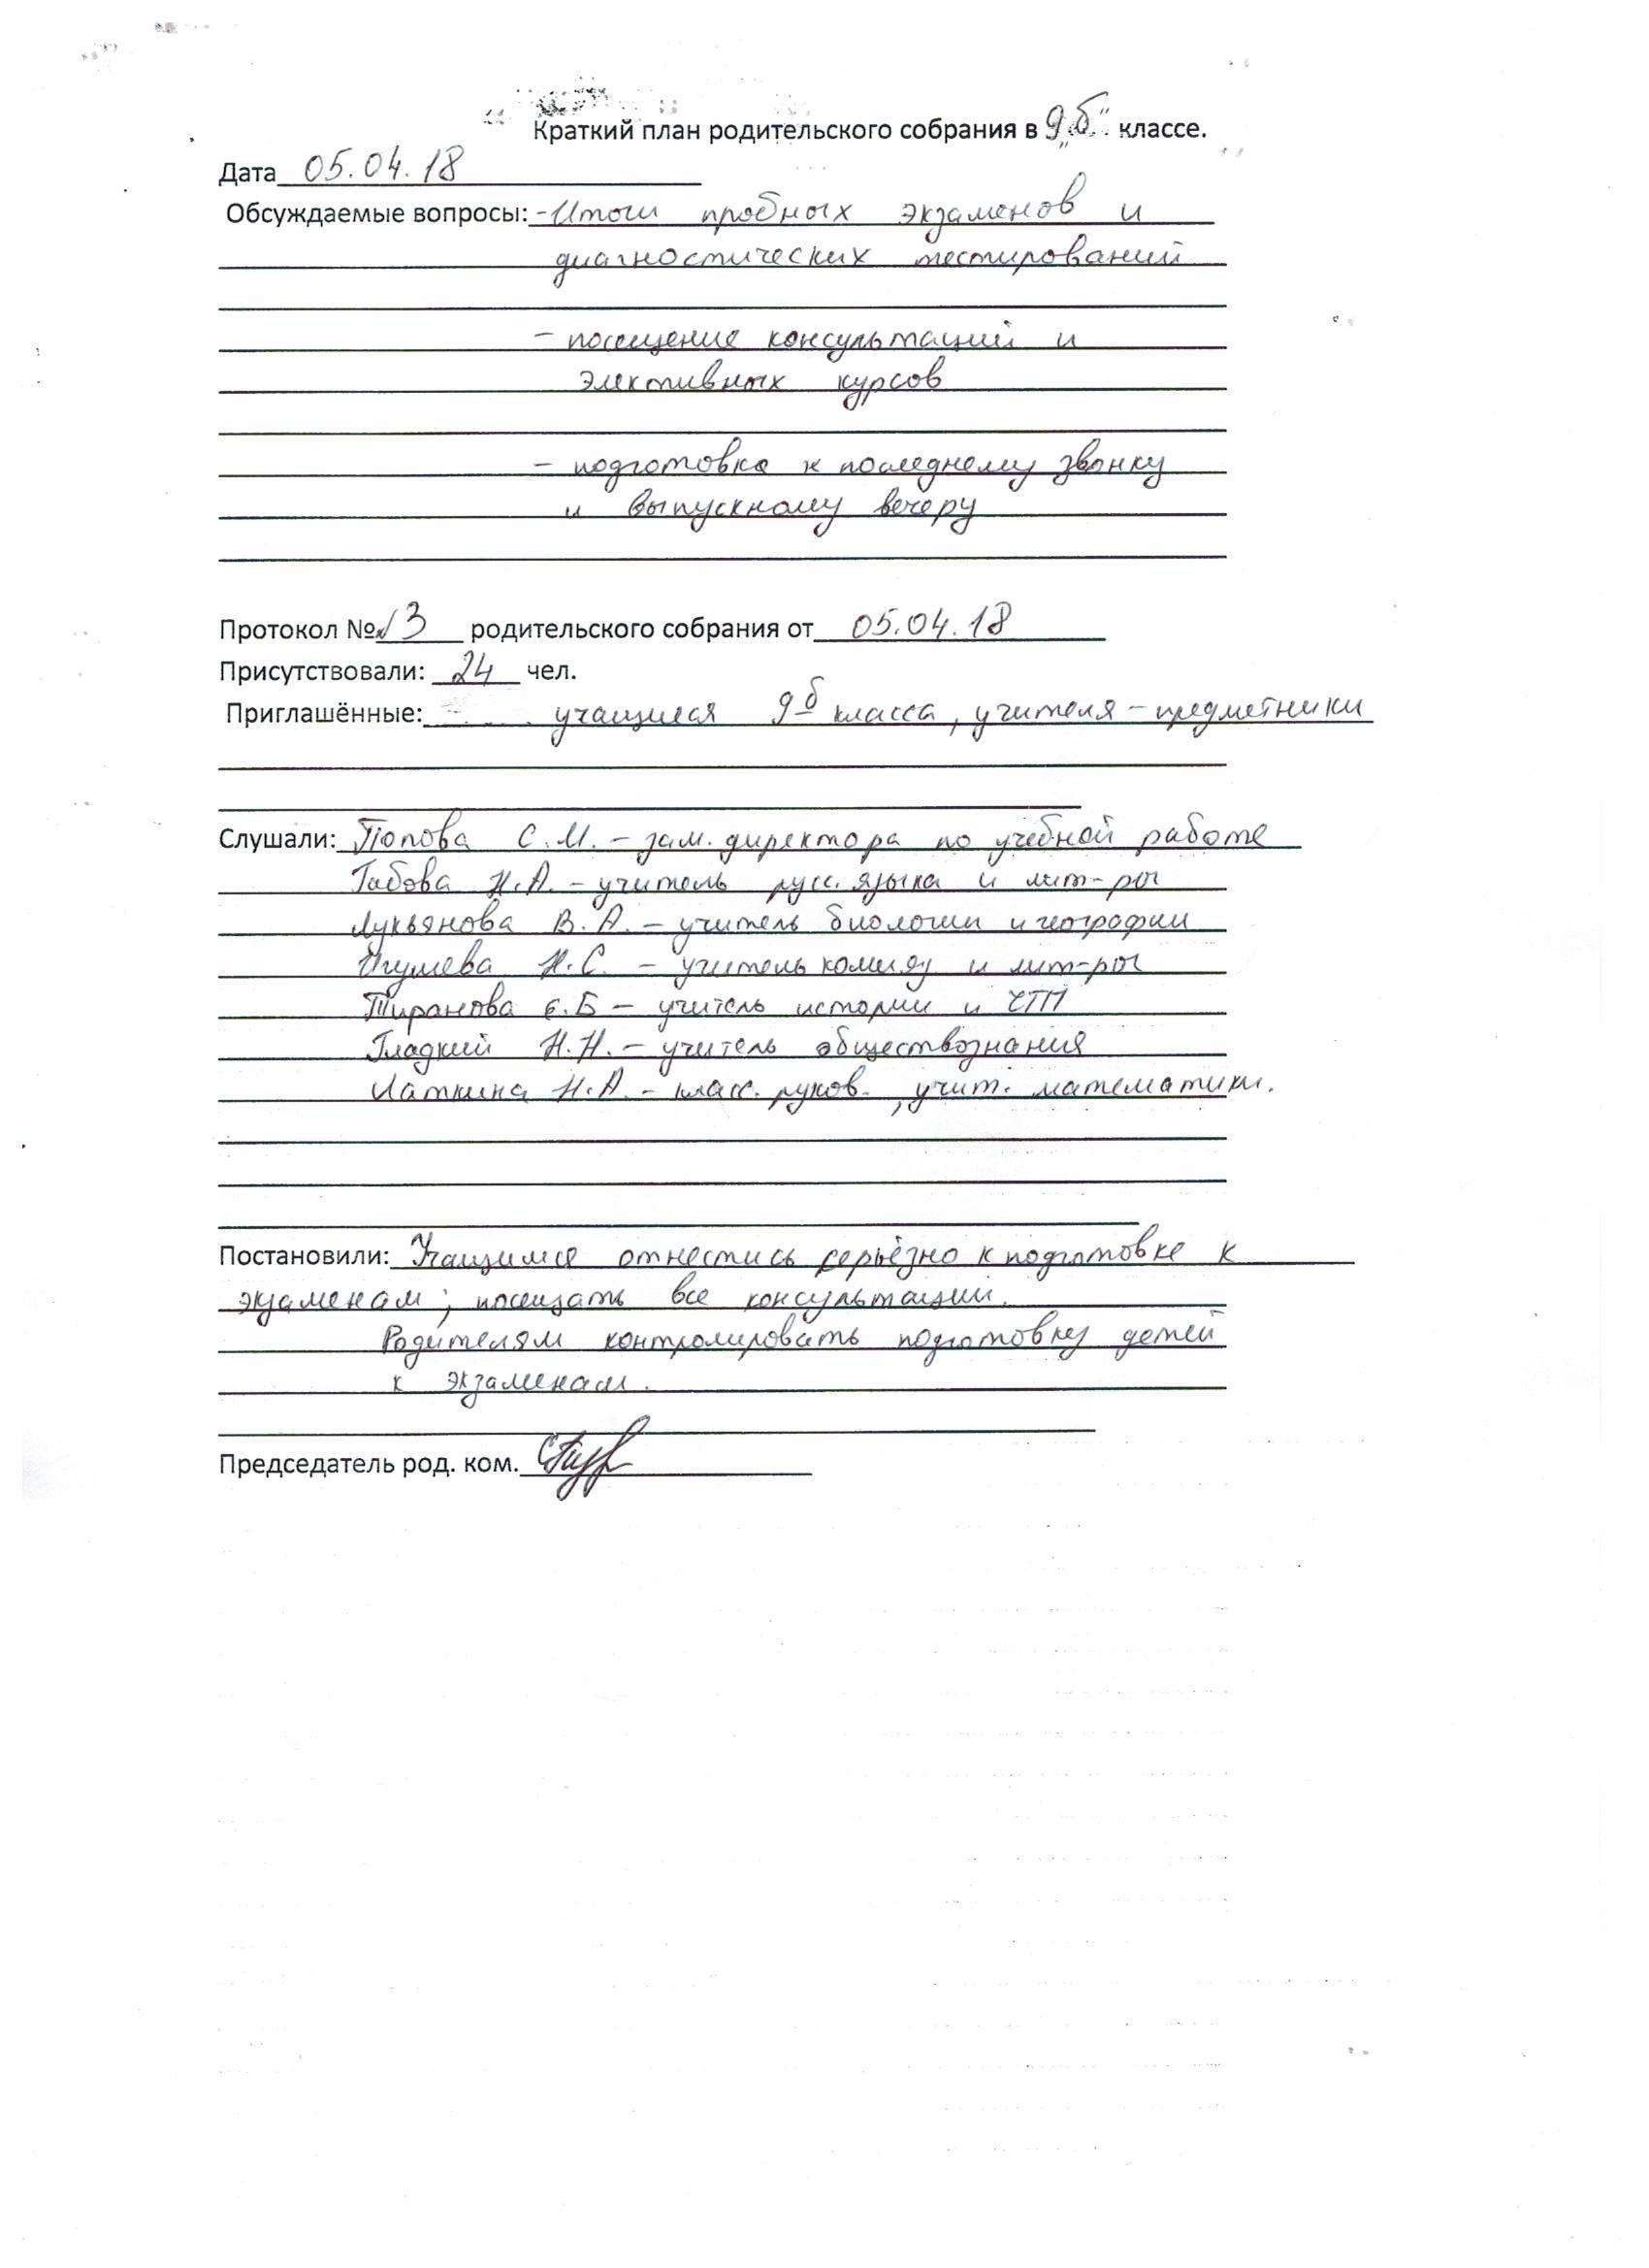 Краткий план родительского собрания в 9 „б" классе.
Дата 05.04.18
Обсуждаемые вопросы: - Итоги пробных экзаменов и
диагностических тестирований
- посещение консультаций и
элективных курсов
- подготовка к последнему звонку
и выпускному вечеру
Протокол № 3 родительского собрания от 05.04.18
Присутствовали: 24 чел.
Приглашённые: учащиеся 9б класса, учителя-предметники
Слушали: Попова С.М. - зам. директора по учебной работе
Габова Н.А. - учитель русс. языка и лит-ры
Лукьянова В.А. - учитель биологии и географии
Игушева Н.С. - учитель коми яз и лит-ры
Тиранова Е.Б - учитель истории и ЧТП
Гладкий Н.Н. - учитель обществознания
Латкина Н.А. - класс. руков., учит. математики.
Постановили: Учащимся отнестись серьёзно к подготовке к
экзаменам; посещать все консультации.
Родителям контролировать подготовку детей
к экзаменам.
Председатель род. ком.